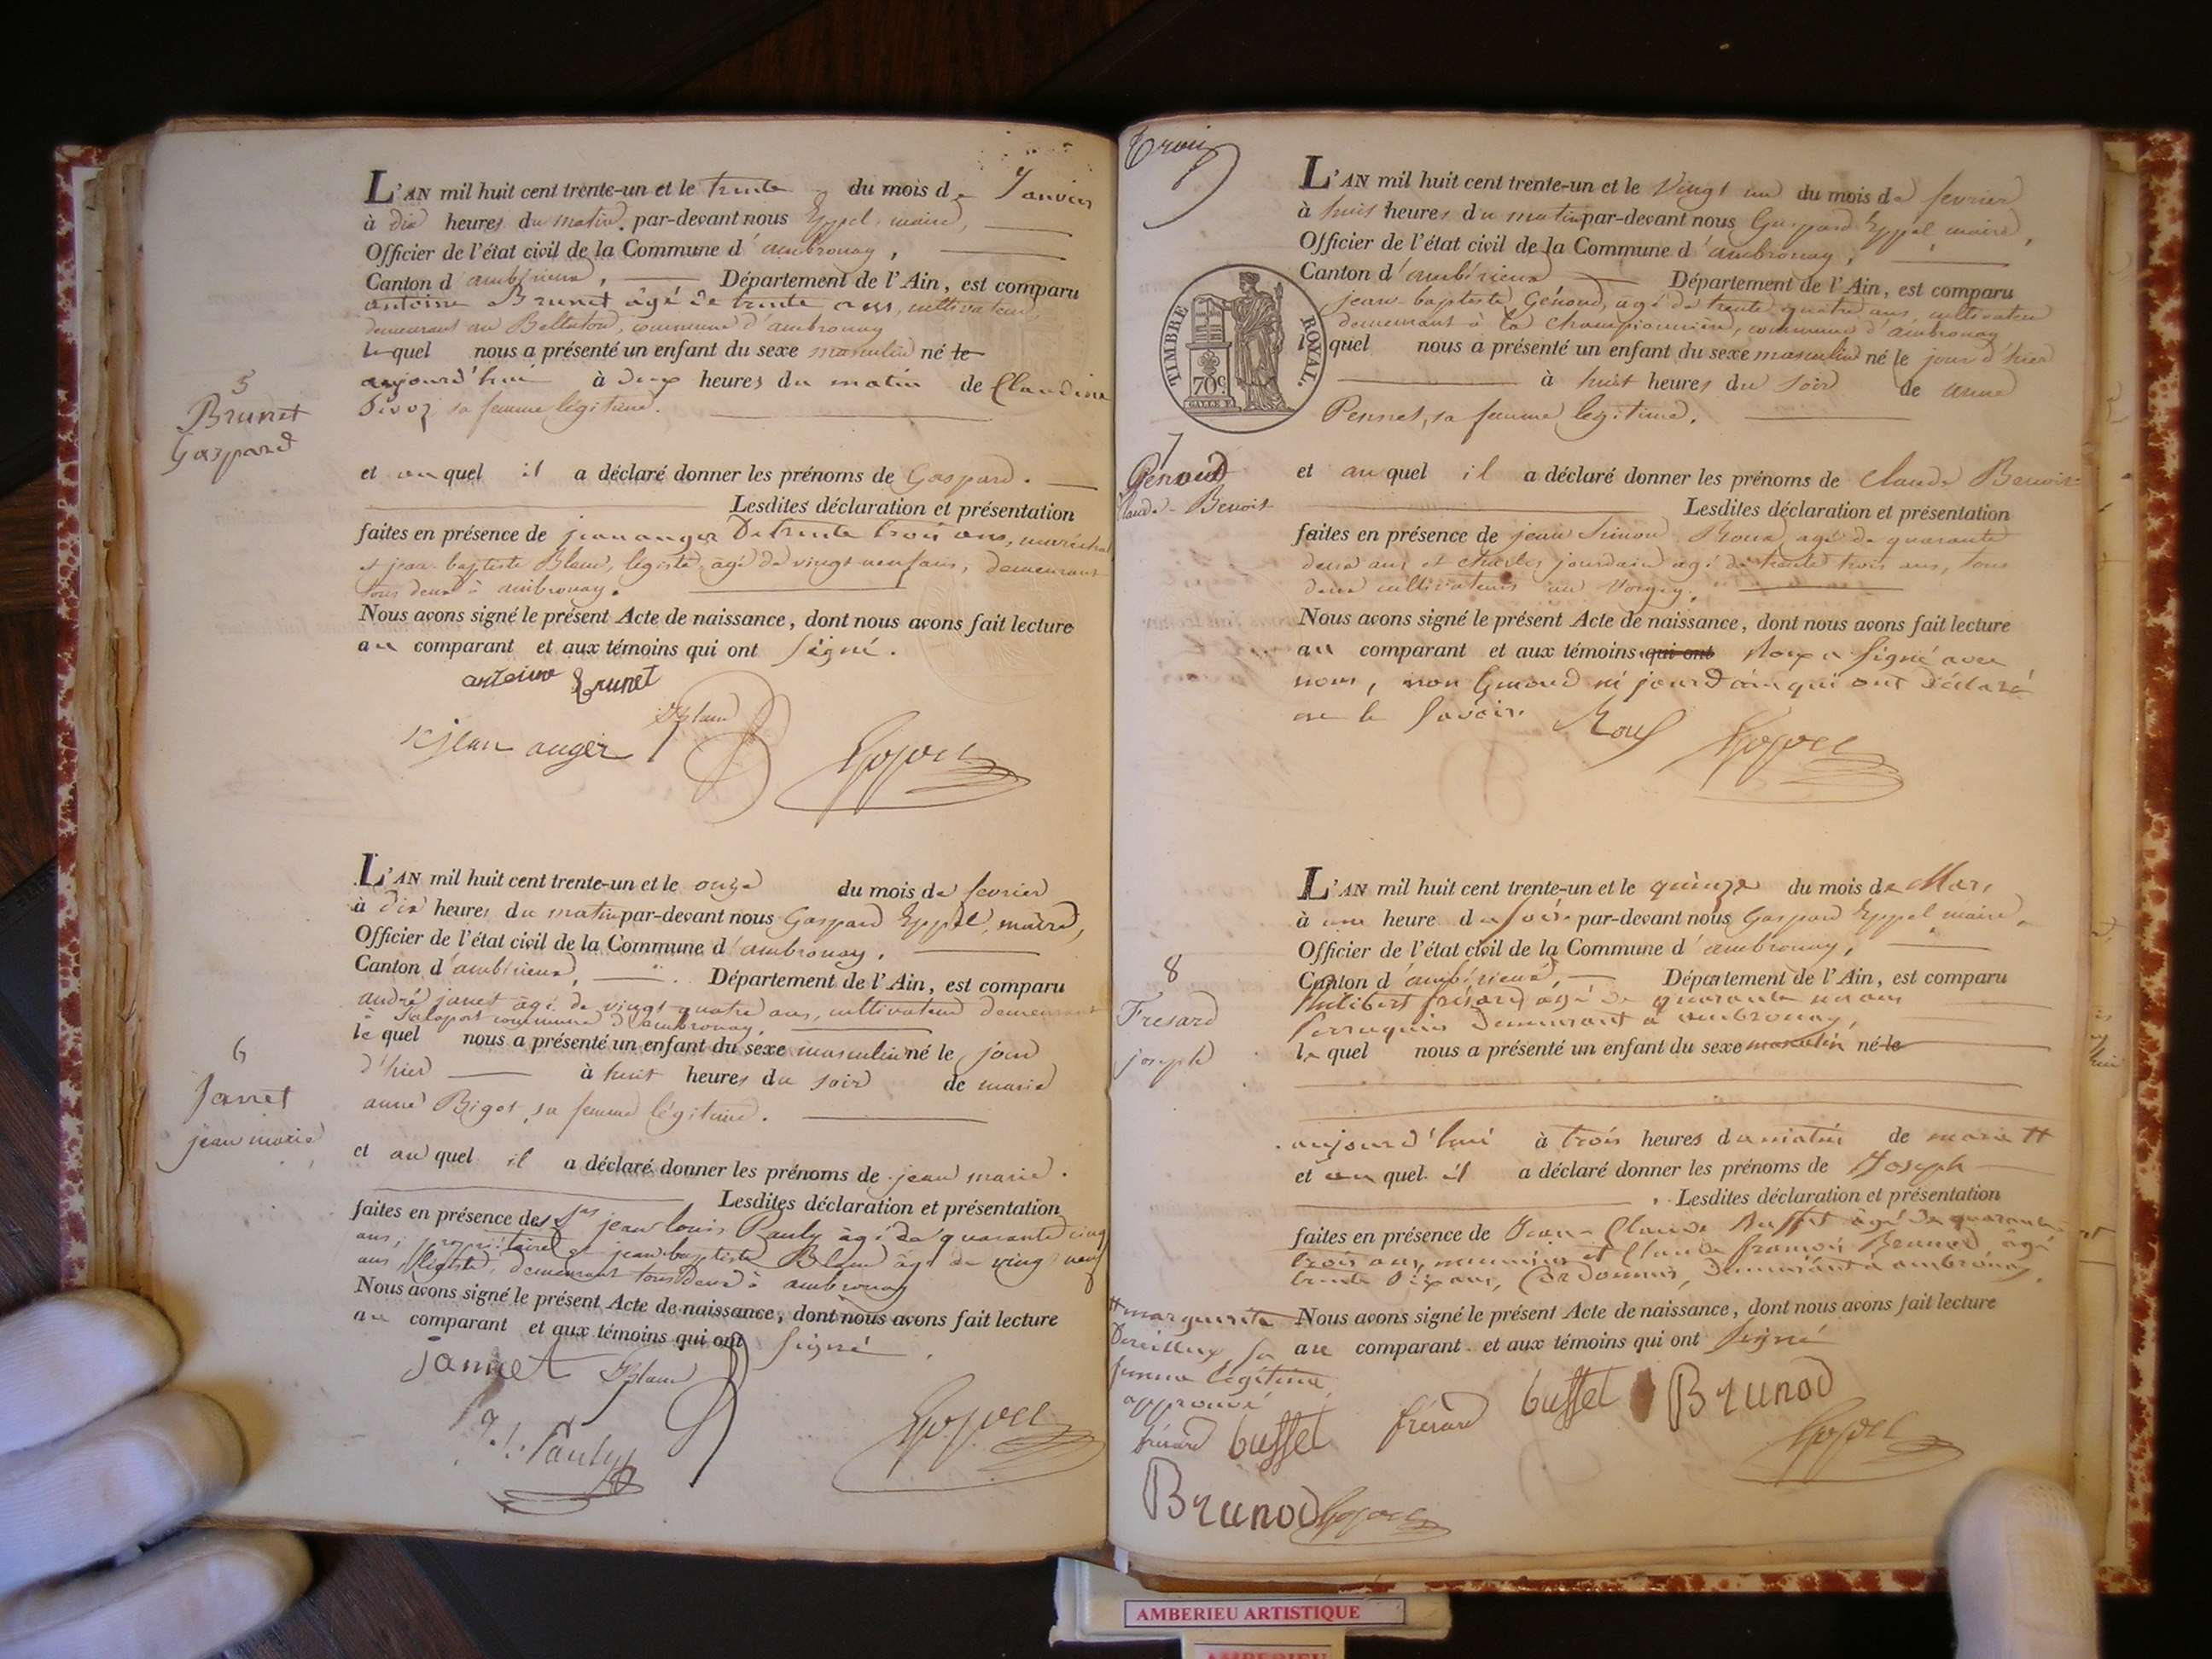 L'AN mil huit cent trente-un et le trente du mois de Janvier
à dix heures du matin par-devant nous Eppel, maire,
Officier de l'état civil de la Commune d'ambronay,
Canton d'ambérieux, Département de l'Ain, est comparu
antoine Brunet âgé de trente ans, cultivateur,
demeurant au Bellaton, commune d'ambronay
lequel nous a présenté un enfant du sexe masculin né le
aujourd'hui à deux heures du matin de Claudine
sa femme légitime.
5
Brunet
Gaspard
et auquel il a déclaré donner les prénoms de Gaspard.
Lesdites déclaration et présentation
faites en présence de jean auger De trente trois ans, maréchal
et jean-baptiste Bland, légiste, âgé de vingt neuf ans, demeurant
tous deux à ambronay.
Nous avons signé le présent Acte de naissance, dont nous avons fait lecture
au comparant et aux témoins qui ont signé.
antoine Brunet
Bland
jean auger Eppel
L'AN mil huit cent trente-un et le onze du mois de fevrier
à dix heures du matin par-devant nous Gaspard Eppel, maire,
Officier de l'état civil de la Commune d'ambronay,
Canton d'ambérieux, Département de l'Ain, est comparu
andré janet âgé de vingt quatre ans, cultivateur demeurant
à Salaport commune d'ambronay.
lequel nous a présenté un enfant du sexe masculin né le jour
d'hier à huit heures du soir de marie
anne Bigot, sa femme légitime.
6
Janet
jean marie
et auquel il a déclaré donner les prénoms de jean marie.
Lesdites déclaration et présentation
faites en présence des Srs jean louis Pauly âgé de quarante cinq
ans, propriétaire et jean-baptiste Bland âgé de vingt neuf
ans, légiste, demeurant tous deux à ambronay
Nous avons signé le présent Acte de naissance, dont nous avons fait lecture
au comparant et aux témoins qui ont signé.
janet Bland
J. L. Pauly Eppel
Trois
L'AN mil huit cent trente-un et le Vingt un du mois de fevrier
à huit heures du matin par-devant nous Gaspard Eppel maire,
Officier de l'état civil de la Commune d'ambronay,
Canton d'ambérieux Département de l'Ain, est comparu
jean-baptiste Génoud, âgé de trente quatre ans, cultivateur
demeurant à la championnière, commune d'ambronay
lequel nous a présenté un enfant du sexe masculin né le jour d'hier
à huit heures du soir de anne
Pennet, sa femme légitime.
TIMBRE ROYAL.
70c
7
Génoud
Claude-Benoit
et auquel il a déclaré donner les prénoms de Claude Benoit
Lesdites déclaration et présentation
faites en présence de jean Simon Roux, âgé de quarante
deux ans et charles jourdain âgé de trente trois ans, tous
deux cultivateurs au Vorgey.
Nous avons signé le présent Acte de naissance, dont nous avons fait lecture
au comparant et aux témoins qui ont Roux a signé avec
nous, non Genoud ni jourdain qui ont déclaré
ne le savoir. Roux Eppel
L'AN mil huit cent trente-un et le quinze du mois de Mars
à une heure du soir par-devant nous Gaspard Eppel maire,
Officier de l'état civil de la Commune d'ambronay,
Canton d'ambérieux, Département de l'Ain, est comparu
Philibert frésard âgé de quarante un ans
Perruquier Demeurant à ambronay,
lequel nous a présenté un enfant du sexe masculin né le
8
Fresard
joseph
aujourd'hui à trois heures du matin de marie #
et auquel il a déclaré donner les prénoms de Joseph
Lesdites déclaration et présentation
faites en présence de Jean-Claude Buffet âgé de quarante
trois ans, menuisier et Claude françois Brunod âgé
trente six ans, Cordonnier, Demeurant à ambronay.
Nous avons signé le présent Acte de naissance, dont nous avons fait lecture
au comparant et aux témoins qui ont signé
# marguerite
sa
femme légitime
approuvé
frésard buffet
frésard buffet Brunod
Eppel
Brunod Eppel
AMBERIEU ARTISTIQUE
AMBERIEU